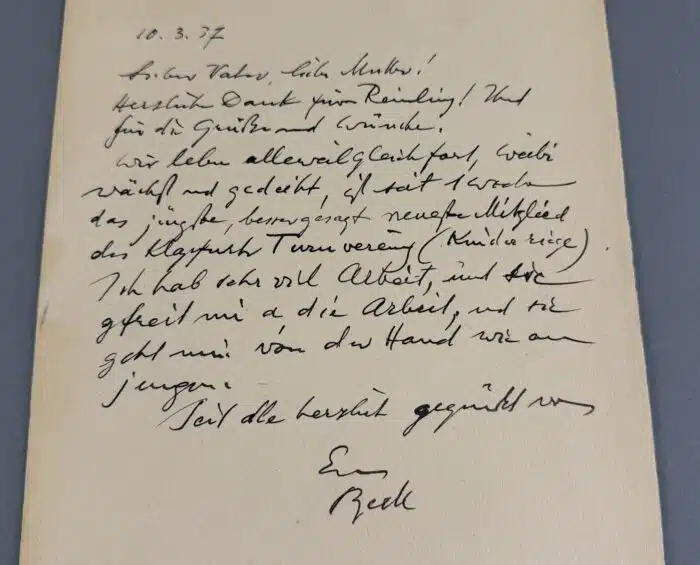 10.3.37
Lieber Vater, liebe Mutter!
Herzlich Dank für Reindling! Und
für die Grüße und Wünsche.
Wir leben alleweil gleich fort,
wächst und gedeiht, ist seit 1 Woche
das jüngste, besser gesagt neueste Mitglied
des Klagenfurter Turnvereins (Kinderriege).
Ich hab sehr viel Arbeit, und sie
gfreit mi a die Arbeit, und sie
geht mir von der Hand wie am
jungen.
Seid alle herzlich gegrüßt von